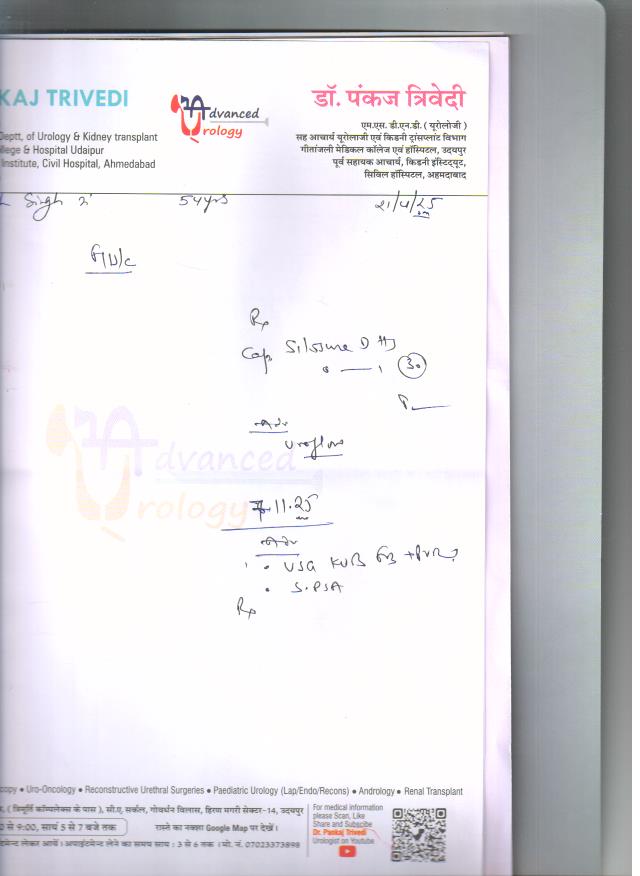 KAJ TRIVEDI
Advanced
Urology
डॉ. पंकज त्रिवेदी
एम.एस. डी.एन.बी. ( यूरोलोजी )
Deptt, of Urology & Kidney transplant
सह आचार्य यूरोलाजी एवं किडनी ट्रांसप्लांट विभाग
llege & Hospital Udaipur
गीतांजली मेडिकल कॉलेज एवं हॉस्पिटल, उदयपुर
Institute, Civil Hospital, Ahmedabad
पूर्व सहायक आचार्य, किडनी इंस्टिट्यूट,
सिविल हॉस्पिटल, अहमदाबाद
Singh 54yrs 21/4/25
Rx
Cap
30
Advanced
Urology
Uroflow
7.11.25
USG KUB + PVR
S.PSA
Rx
copy • Uro-Oncology • Reconstructive Urethral Surgeries • Paediatric Urology (Lap/Endo/Recons) • Andrology • Renal Transplant
( त्रिमूर्ति कॉम्पलेक्स के पास ), सी.ए. सर्कल, गोवर्धन विलास, हिरण मगरी सेक्टर-14, उदयपुर
0 से 9:00, सायं 5 से 7 बजे तक
रास्ते का नक्शा Google Map पर देखें।
टमेन्ट लेकर आयें। अपाइंटमेन्ट लेने का समय सायं : 3 से 6 तक । मो. नं. 07023373898
For medical information
please Scan, Like
Share and Subscibe
Dr. Pankaj Trivedi
Urologist on Youtube